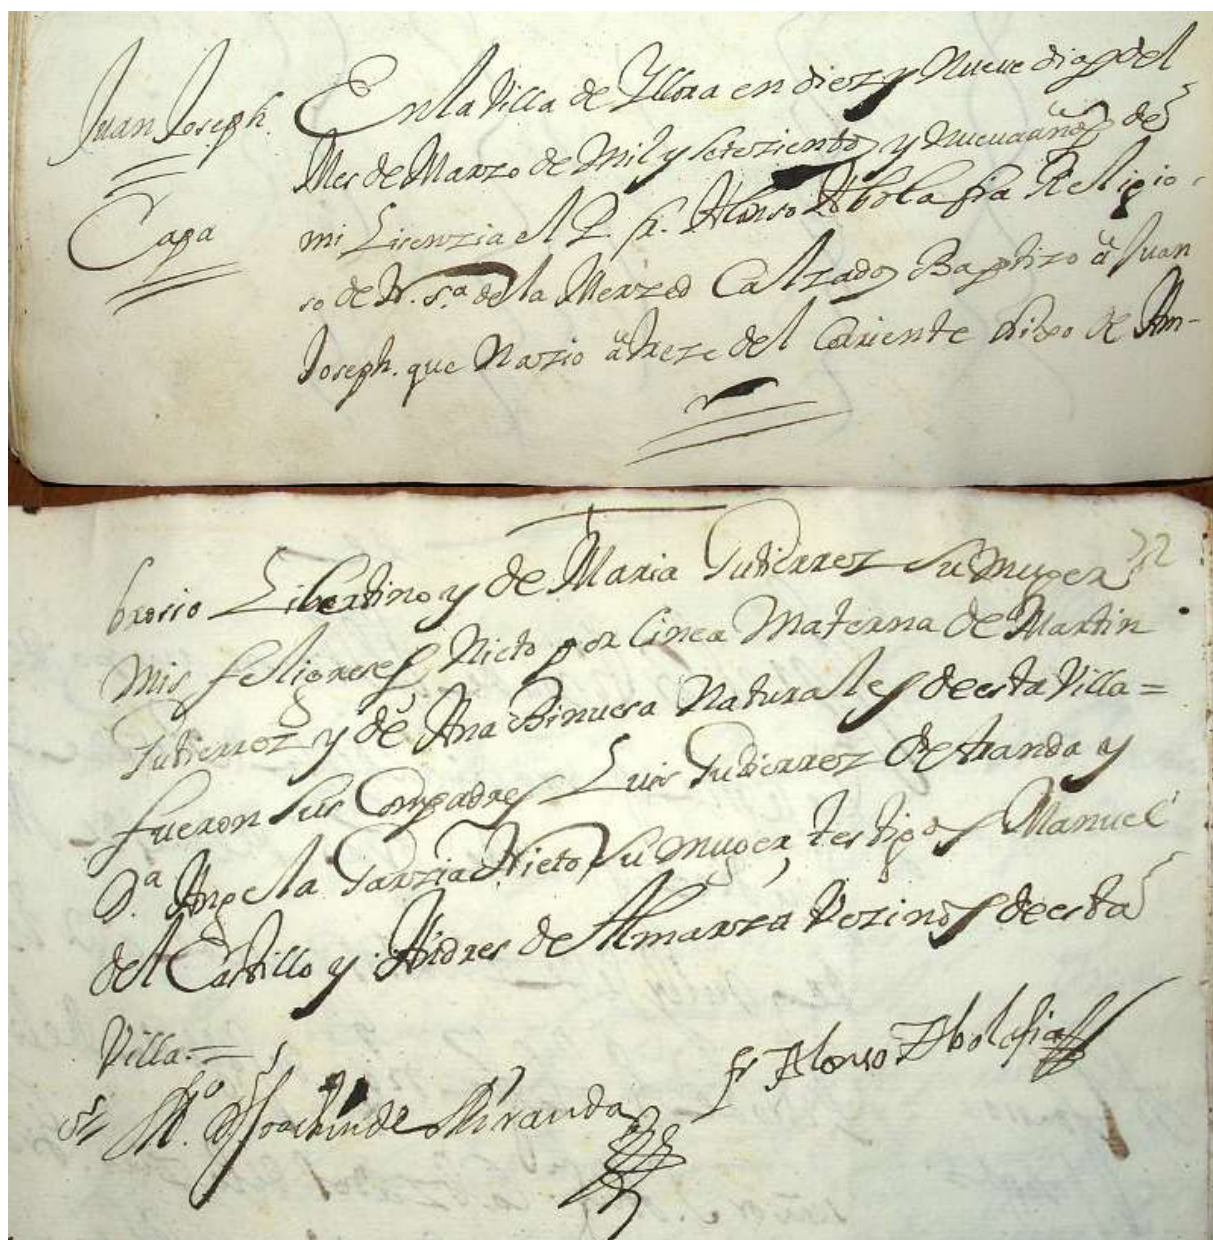 Juan Joseph.
Capa
En la Villa de Yllora en diez y Nueue dias del
Mes de Marzo de Mil y setezientos y Nueue años de
mi Lisenzia el P. fr. Alonso Abolafia Religio-
so de N. Sª. de la Merzed Calzados Baptizo â Juan
Joseph. que Nazio â treze del Corriente hixo de Am-
brosio Libertino y de Maria Gutierrez su muger
22
mis feligreses Nieto por linea Materna de Martin
Gutierrez y de Ana Binuesa Naturales de esta Villa =
fueron sus Compadres Luis Gutierrez de Aranda y
D.ª Angela Garzia Nieto su muger, testigos Manuel
del Castillo y Andres de Almarza Vezinos de esta
Villa =
fr Alonso Abolafia
M.º D Joachin de Miranda